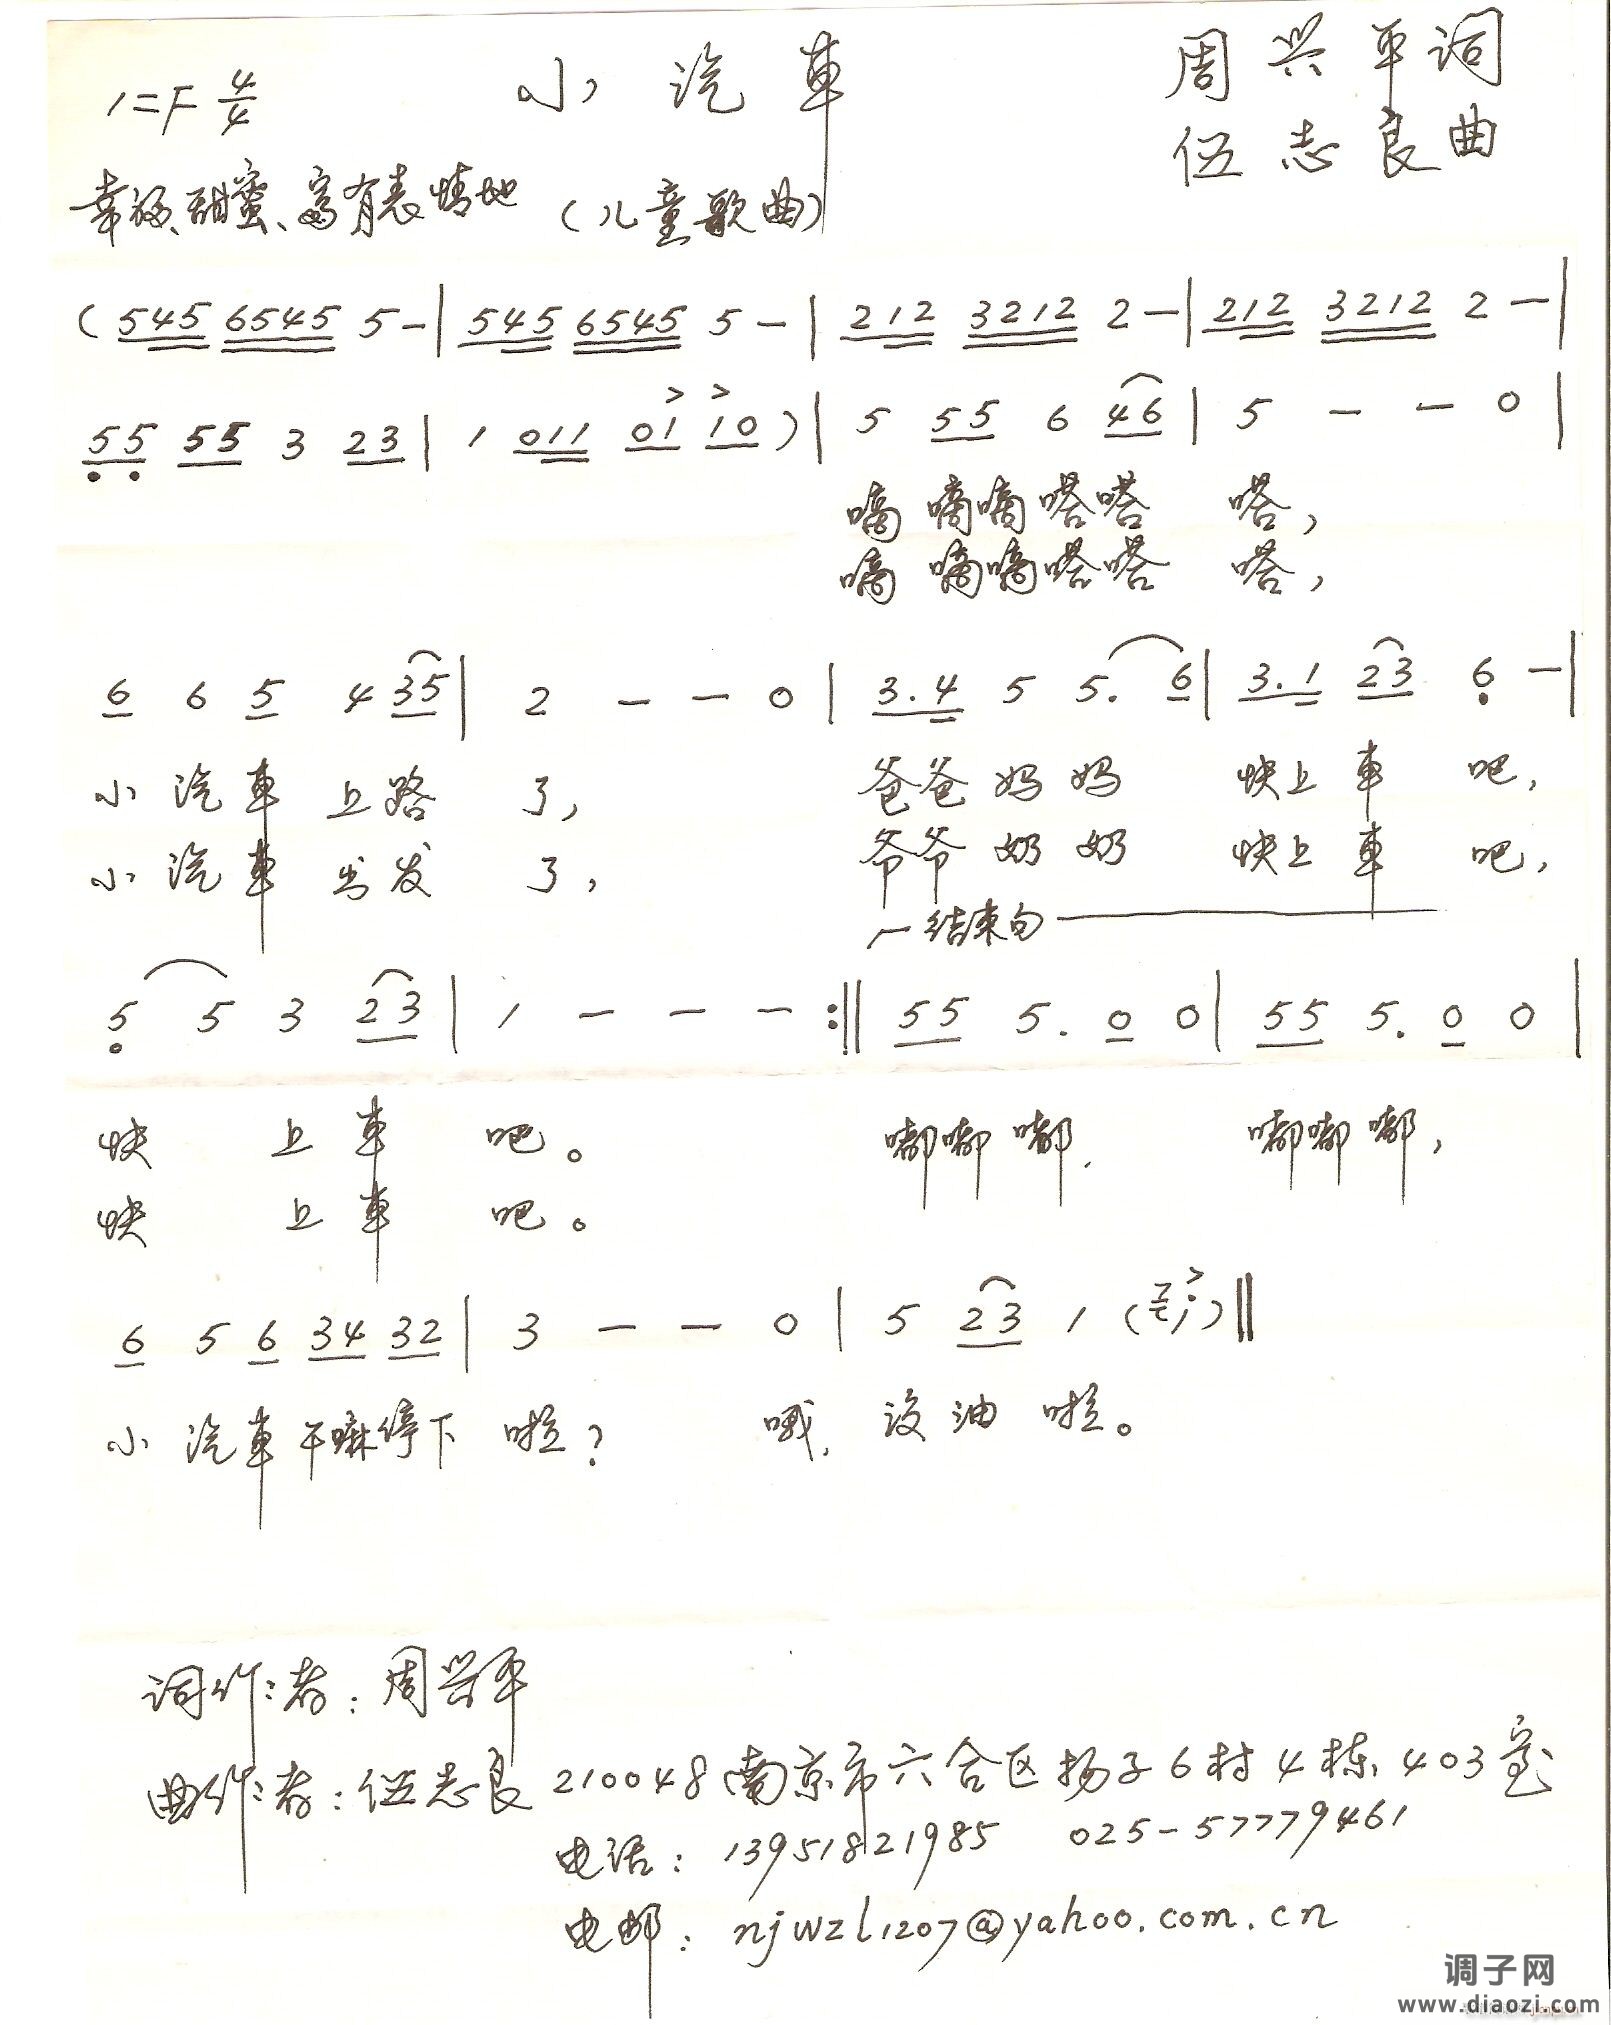 小汽車
周兴平词
1=F 4/4
伍志良曲
幸福、甜蜜、富有表情地 (儿童歌曲)
(545 6545 5-|545 6545 5-|212 3212 2-|212 3212 2-|
55 55 3 23|1 011 01 10)|5 55 6 46|5 - - 0|
嘀嘀嘀嗒嗒 嗒,
嘀嘀嘀嗒嗒 嗒,
6 6 5 4 35|2 - - 0|3.4 5 5. 6|3.1 23 6 -|
小汽車上路 了, 爸爸妈妈 快上車 吧,
小汽車出发 了, 爷爷奶奶 快上車 吧,
结束句
5 5 3 23|1 - - -:‖55 5. 0 0|55 5. 0 0|
快 上車 吧。 嘟嘟嘟, 嘟嘟嘟,
快 上車 吧。
6 5 6 34 32|3 - - 0|5 23 1 ( 1)‖
小汽車干嘛停下 啦? 哦, 没油 啦。
词作者:周兴平
曲作者:伍志良 210048南京市六合区扬子6村4栋403室
电话: 13951821985 025-57779461
电邮: njwzl1207@yahoo.com.cn
调子网
www.diaozi.com